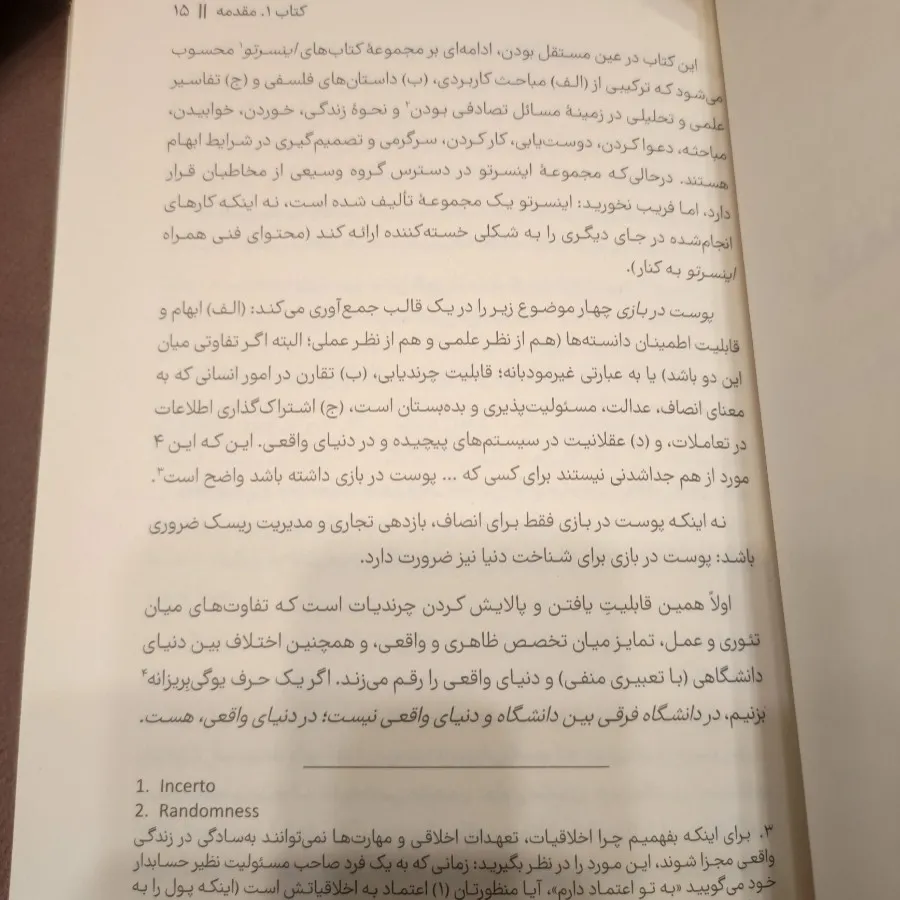 کتاب ۱. مقدمه || ۱۵
این کتاب در عین مستقل بودن، ادامه‌ای بر مجموعهٔ کتاب‌های اینسرتو۱ محسوب
می‌شود که ترکیبی از (الف) مباحث کاربردی، (ب) داستان‌های فلسفی و (ج) تفاسیر
علمی و تحلیلی در زمینهٔ مسائل تصادفی بودن۲ و نحوهٔ زندگی، خوردن، خوابیدن،
مباحثه، دعوا کردن، دوست‌یابی، کار کردن، سرگرمی و تصمیم‌گیری در شرایط ابهام
هستند. درحالی‌که مجموعهٔ اینسرتو در دسترس گروه وسیعی از مخاطبان قرار
دارد، اما فریب نخورید: اینسرتو یک مجموعهٔ تألیف شده است، نه اینکه کارهای
انجام‌شده در جای دیگری را به شکلی خسته‌کننده ارائه کند (محتوای فنی همراه
اینسرتو به کنار).
پوست در بازی چهار موضوع زیر را در یک قالب جمع‌آوری می‌کند: (الف) ابهام و
قابلیت اطمینان دانسته‌ها (هم از نظر علمی و هم از نظر عملی؛ البته اگر تفاوتی میان
این دو باشد) یا به عبارتی غیرمودبانه؛ قابلیت چرندیابی، (ب) تقارن در امور انسانی که به
معنای انصاف، عدالت، مسئولیت‌پذیری و بده‌بستان است، (ج) اشتراک‌گذاری اطلاعات
در تعاملات، و (د) عقلانیت در سیستم‌های پیچیده و در دنیای واقعی. این که این ۴
مورد از هم جداشدنی نیستند برای کسی که ... پوست در بازی داشته باشد واضح است۳.
نه اینکه پوست در بازی فقط برای انصاف، بازدهی تجاری و مدیریت ریسک ضروری
باشد: پوست در بازی برای شناخت دنیا نیز ضرورت دارد.
اولاً همین قابلیتِ یافتن و پالایش کردن چرندیات است که تفاوت‌های میان
تئوری و عمل، تمایز میان تخصص ظاهری و واقعی، و همچنین اختلاف بین دنیای
دانشگاهی (با تعبیری منفی) و دنیای واقعی را رقم می‌زند. اگر یک حرف یوگی‌بِریزانه۴
بزنیم، در دانشگاه فرقی بین دانشگاه و دنیای واقعی نیست؛ در دنیای واقعی، هست.
1. Incerto
2. Randomness
۳. برای اینکه بفهمیم چرا اخلاقیات، تعهدات اخلاقی و مهارت‌ها نمی‌توانند به‌سادگی در زندگی
واقعی مجزا شوند، این مورد را در نظر بگیرید: زمانی که به یک فرد صاحب مسئولیت نظیر حسابدار
خود می‌گویید «به تو اعتماد دارم»، آیا منظورتان (۱) اعتماد به اخلاقیاتش است (اینکه پول را به